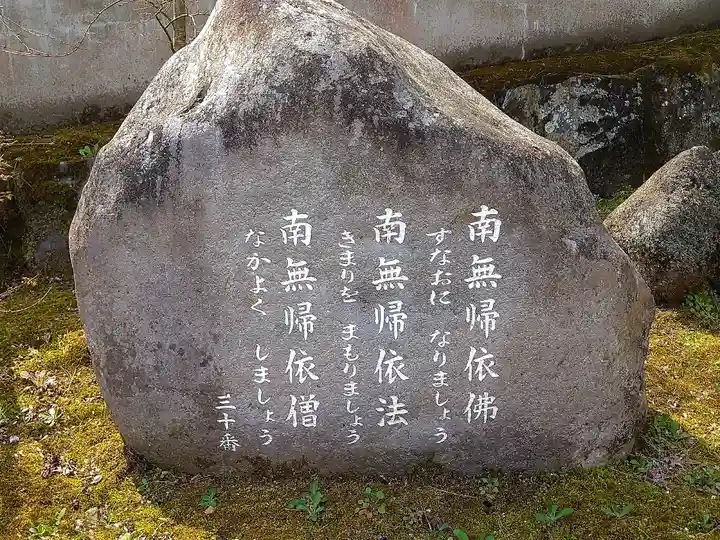 南無帰依佛
すなおに なりましょう
南無帰依法
きまりを まもりましょう
南無帰依僧
なかよく しましょう
三十番